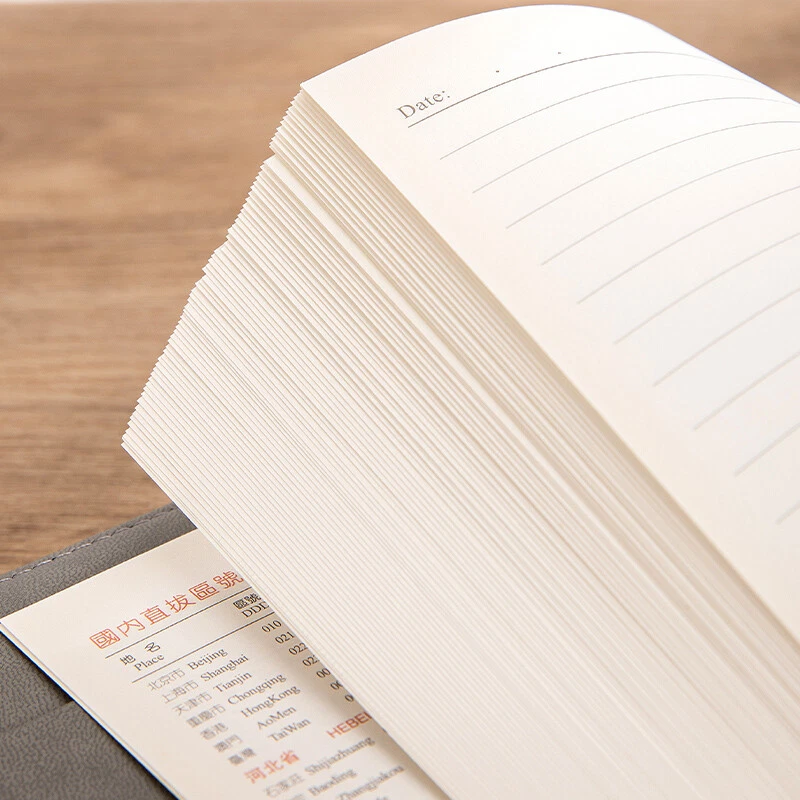 Date:
國內直拔區號
地 名 區號
Place DDD
北京市 Beijing 010
上海市 Shanghai 021
天津市 Tianjin
重慶市 Chongqing
香港 HongKong
澳門 AoMen
臺灣 TaiWan
河北省 HEBEI
石家莊 Shijiazhuang
Baoding
Zhangjiakou